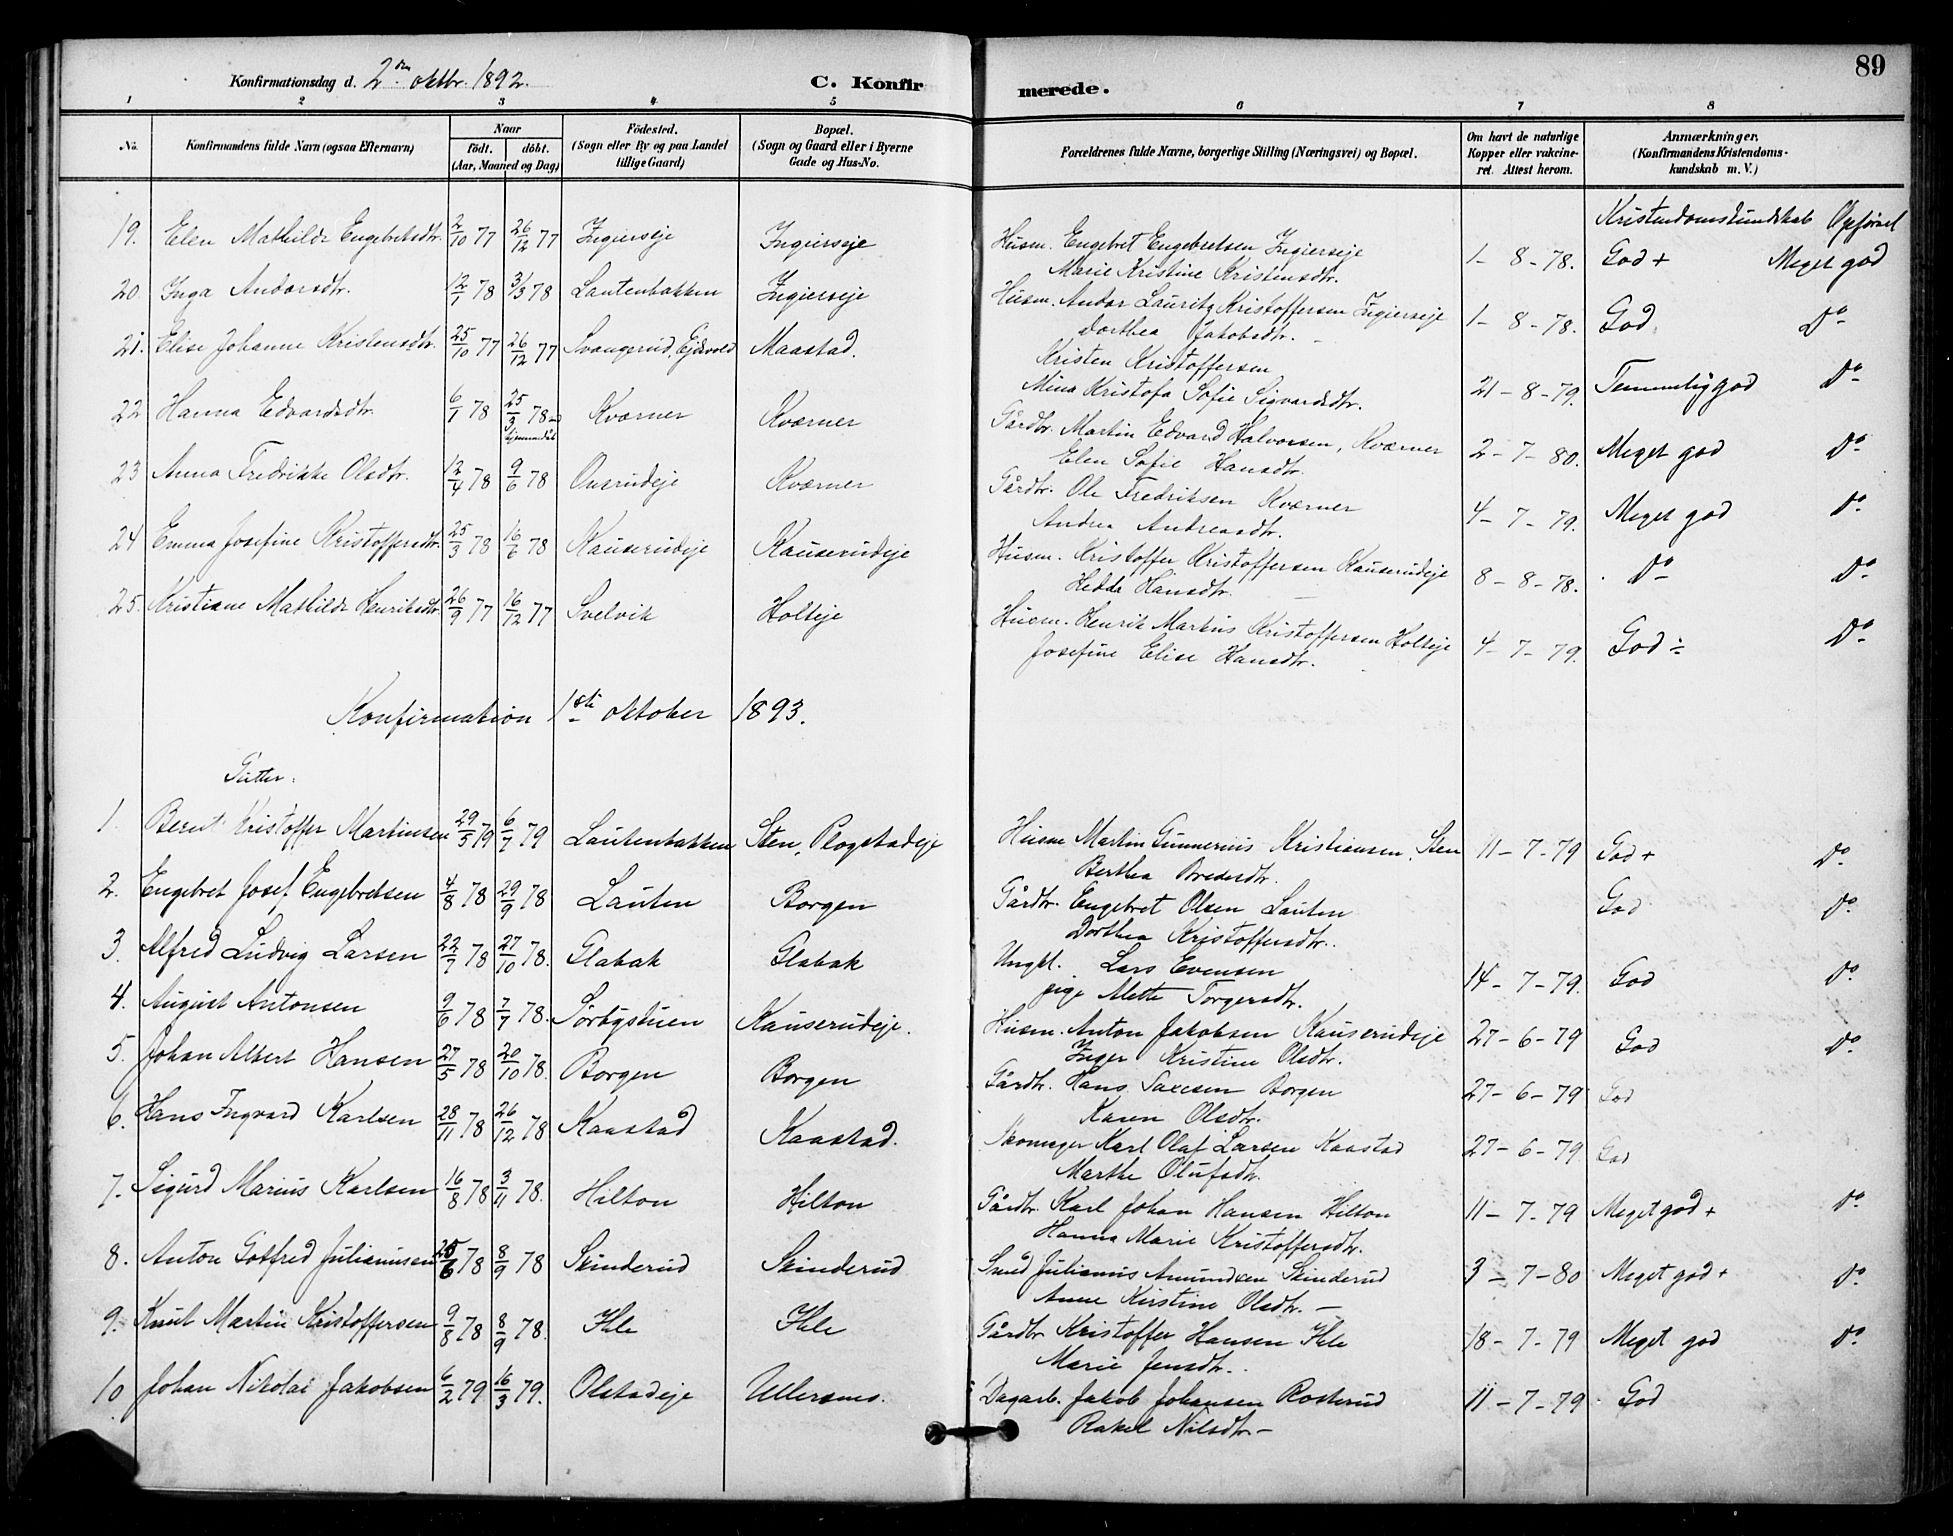 89
Konfirmationsdag d. 2den oktbr. 1892.
C. Konfirmerede.
1 2 3 4 5 6 7 8
No.
Konfirmandens fulde Navn (ogsaa Efternavn)
Naar
født. døbt.
(Aar, Maaned og Dag)
Födested.
(Sogn eller By og paa Landet
tillige Gaard)
Bopæl.
(Sogn og Gaard eller i Byerne
Gade og Hus-No.
Forældrenes fulde Navne, borgerlige Stilling (Næringsvei) og Bopæl.
Om havt de naturlige
Kopper eller vakcine-
ret. Attest herom.
Anmærkninger.
(Konfirmandens Kristendoms-
kundskab m. V.)
Kristendomskundskab Opførsel
19. Elen Mathilde Engebretsdtr. 2/10 77 26/12 77 Ingierseje Ingierseje Husm. Engebret Engebretsen Ingierseje 1-8-78. God + Meget god
Marie Kristine Kristensdtr.
20. Inga Andorsdtr. 12/1 78 3/3 78 Lautenbakken Ingierseje Husm. Andor Lauritz Kristoffersen Ingierseje 1-8-78. God. Do
Dorthea Jakobsdtr.
21. Elise Johanne Kristensdtr. 25/10 77 26/12 77 Svangerud, Ejdsvold Maastad. Kristen Kristoffersen 21-8-79. Temmelig god Do
Mina Kristofa Sofie Sigvardsdtr.
22 Hanna Edvardsdtr. 6/1 78 25/3 78 hjemmedøbt Kværner Kværner Gårdbr. Martin Edvard Halvorsen, Kværner 2-7-80. Meget god Do
Elen Sofie Hansdtr.
23 Anna Fredrikke Olsdtr. 12/4 78 9/6 78 Onsrudeje Kværner Gårdbr. Ole Fredriksen Kværner 4-7-79. Meget god Do
Andrea Andreasdtr.
24 Emma Josefine Kristoffersdtr. 25/3 78 16/6 78 Kauserudeje Kauserudeje Husm. Kristoffer Kristoffersen Kauserudeje 8-8-78. Do Do
Hedda Hansdtr.
25. Kristiane Mathilde Henriksdtr. 26/9 77 16/12 77 Svelvik Holteje Husm. Henrik Markus Kristoffersen Holteje 4-7-79. God ÷ Do
Josefine Elise Hansdtr.
Konfirmation 1ste oktober 1893.
Gutter.
1. Bernt Kristoffer Martinsen 29/5 79 6/7 79 Lautenbakken Sten, Plogstadeje Husm Martin Gunnerius Kristiansen, Sten 11-7-79 God + Do
Berthea Bredesdtr.
2. Engebret Josef Engebretsen 4/8 78 29/9 78 Lauten Borgen Gårdbr. Engebret Olsen Lauten God Do
Dorthea Kristoffersdtr.
3. Alfred Ludvig Larsen 22/7 78 27/10 78. Glabak Glabak Ungkl. Lars Evensen 14-7-79. God Do
pige Alette Torgersdtr.
4. August Antonsen 9/6 78 7/7 78. Sørbystuen Kauserudeje. Husm. Anton Jakobsen Kauserudeje 27-6-79 God Do
Inger Kristine Olsdtr.
5. Johan Albert Hansen 27/5 78 20/10 78. Borgen Borgen Gårdbr. Hans Saxesen Borgen 27-6-79 God
Karen Olsdtr.
6. Hans Ingvard Karlsen 28/11 78 26/12 78 Kaastad Kaastad. Skomager Karl Olaf Larsen Kaastad 27-6-79 God
Marthe Olufsdtr.
7. Sigurd Marius Karlsen 16/8 78 3/11 78. Hilton Hilton Gårdbr. Karl Johan Hansen Hilton 11-7-79 Meget god + Do
Hanna Marie Kristoffersdtr.
8. Anton Gotfred Julianusen 25/6 78 8/9 78 Skinderud Skinderud Smed Julianus Amundsen Skinderud 3-7-80 Meget god + Do
Anne Kirstine Olsdtr. —
9. Knut Martin Kristoffersen 9/8 78 8/9 78. Ihle Ihle Gårdbr Kristoffer Hansen Ihle 18-7-79 Meget god Do
Marie Jensdtr.
10 Johan Nikolai Jakobsen 6/2 79 16/3 79. Olstadeje Ullersmo. Dagarb. Jakob Johansen Rosterud 11-7-79 God
Rakel Nilsdtr. —